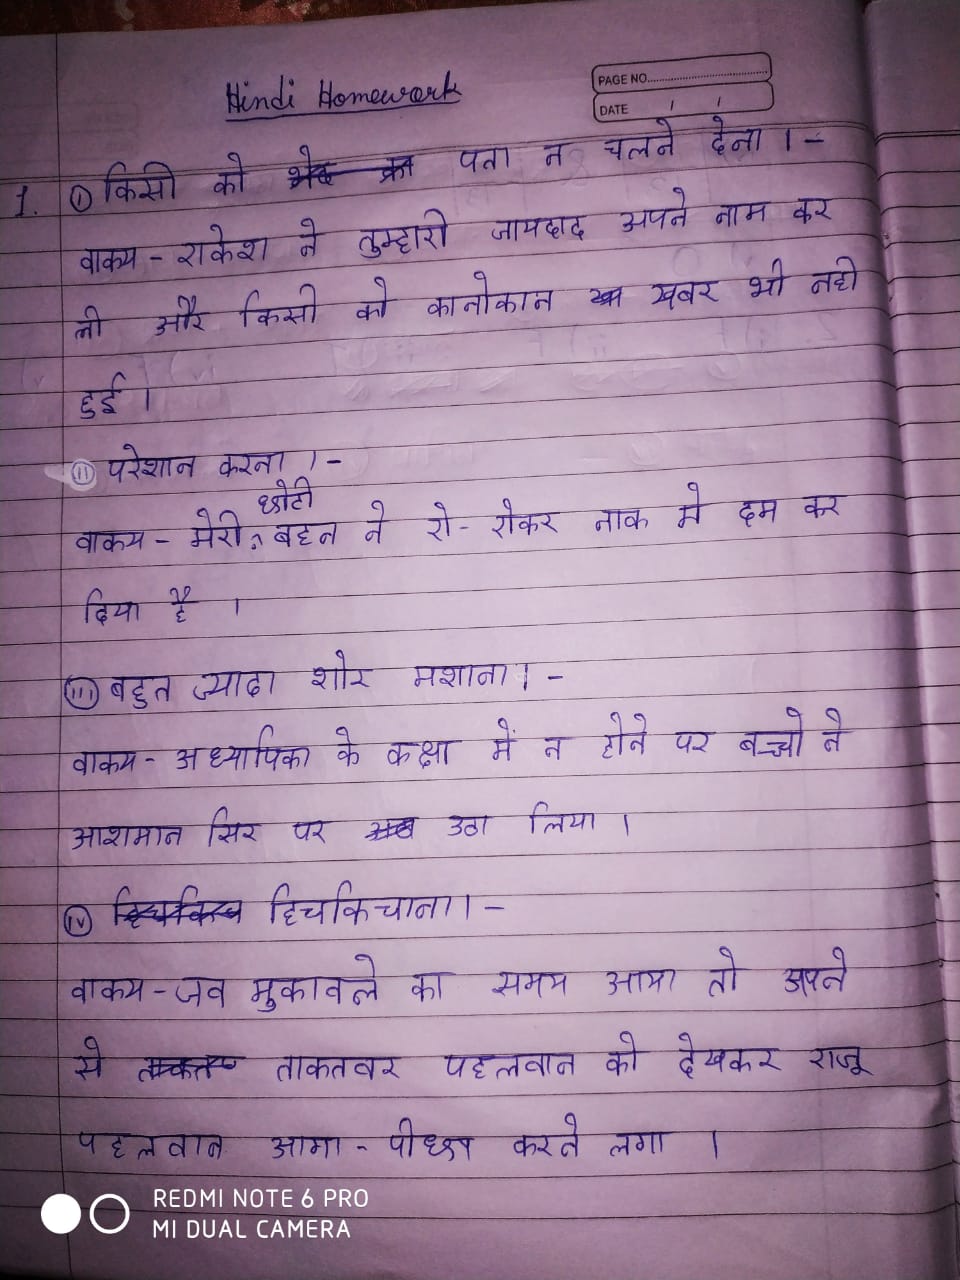 Hindi Homework
PAGE NO.
DATE / /
1. (i) किसी को पता न चलने देना ।-
वाक्य - राकेश ने तुम्हारी जायदाद अपने नाम कर
ली और किसी को कानोकान खबर भी नही
हुई ।
(ii) परेशान करना ।-
छोटी
वाक्य - मेरी बहन ने रो-रोकर नाक मे दम कर
दिया है ।
(iii) बहुत ज्यादा शोर मशाना । -
वाक्य - अध्यापिका के कक्षा में न होने पर बच्चो ने
आशमान सिर पर उठा लिया ।
(iv) हिचकिचाना । -
वाक्य - जब मुकावले का समय आया तो अपने
से ताकतवर पहलवान को देखकर राजू
पहलवान आगा - करने लगा ।
REDMI NOTE 6 PRO
MI DUAL CAMERA